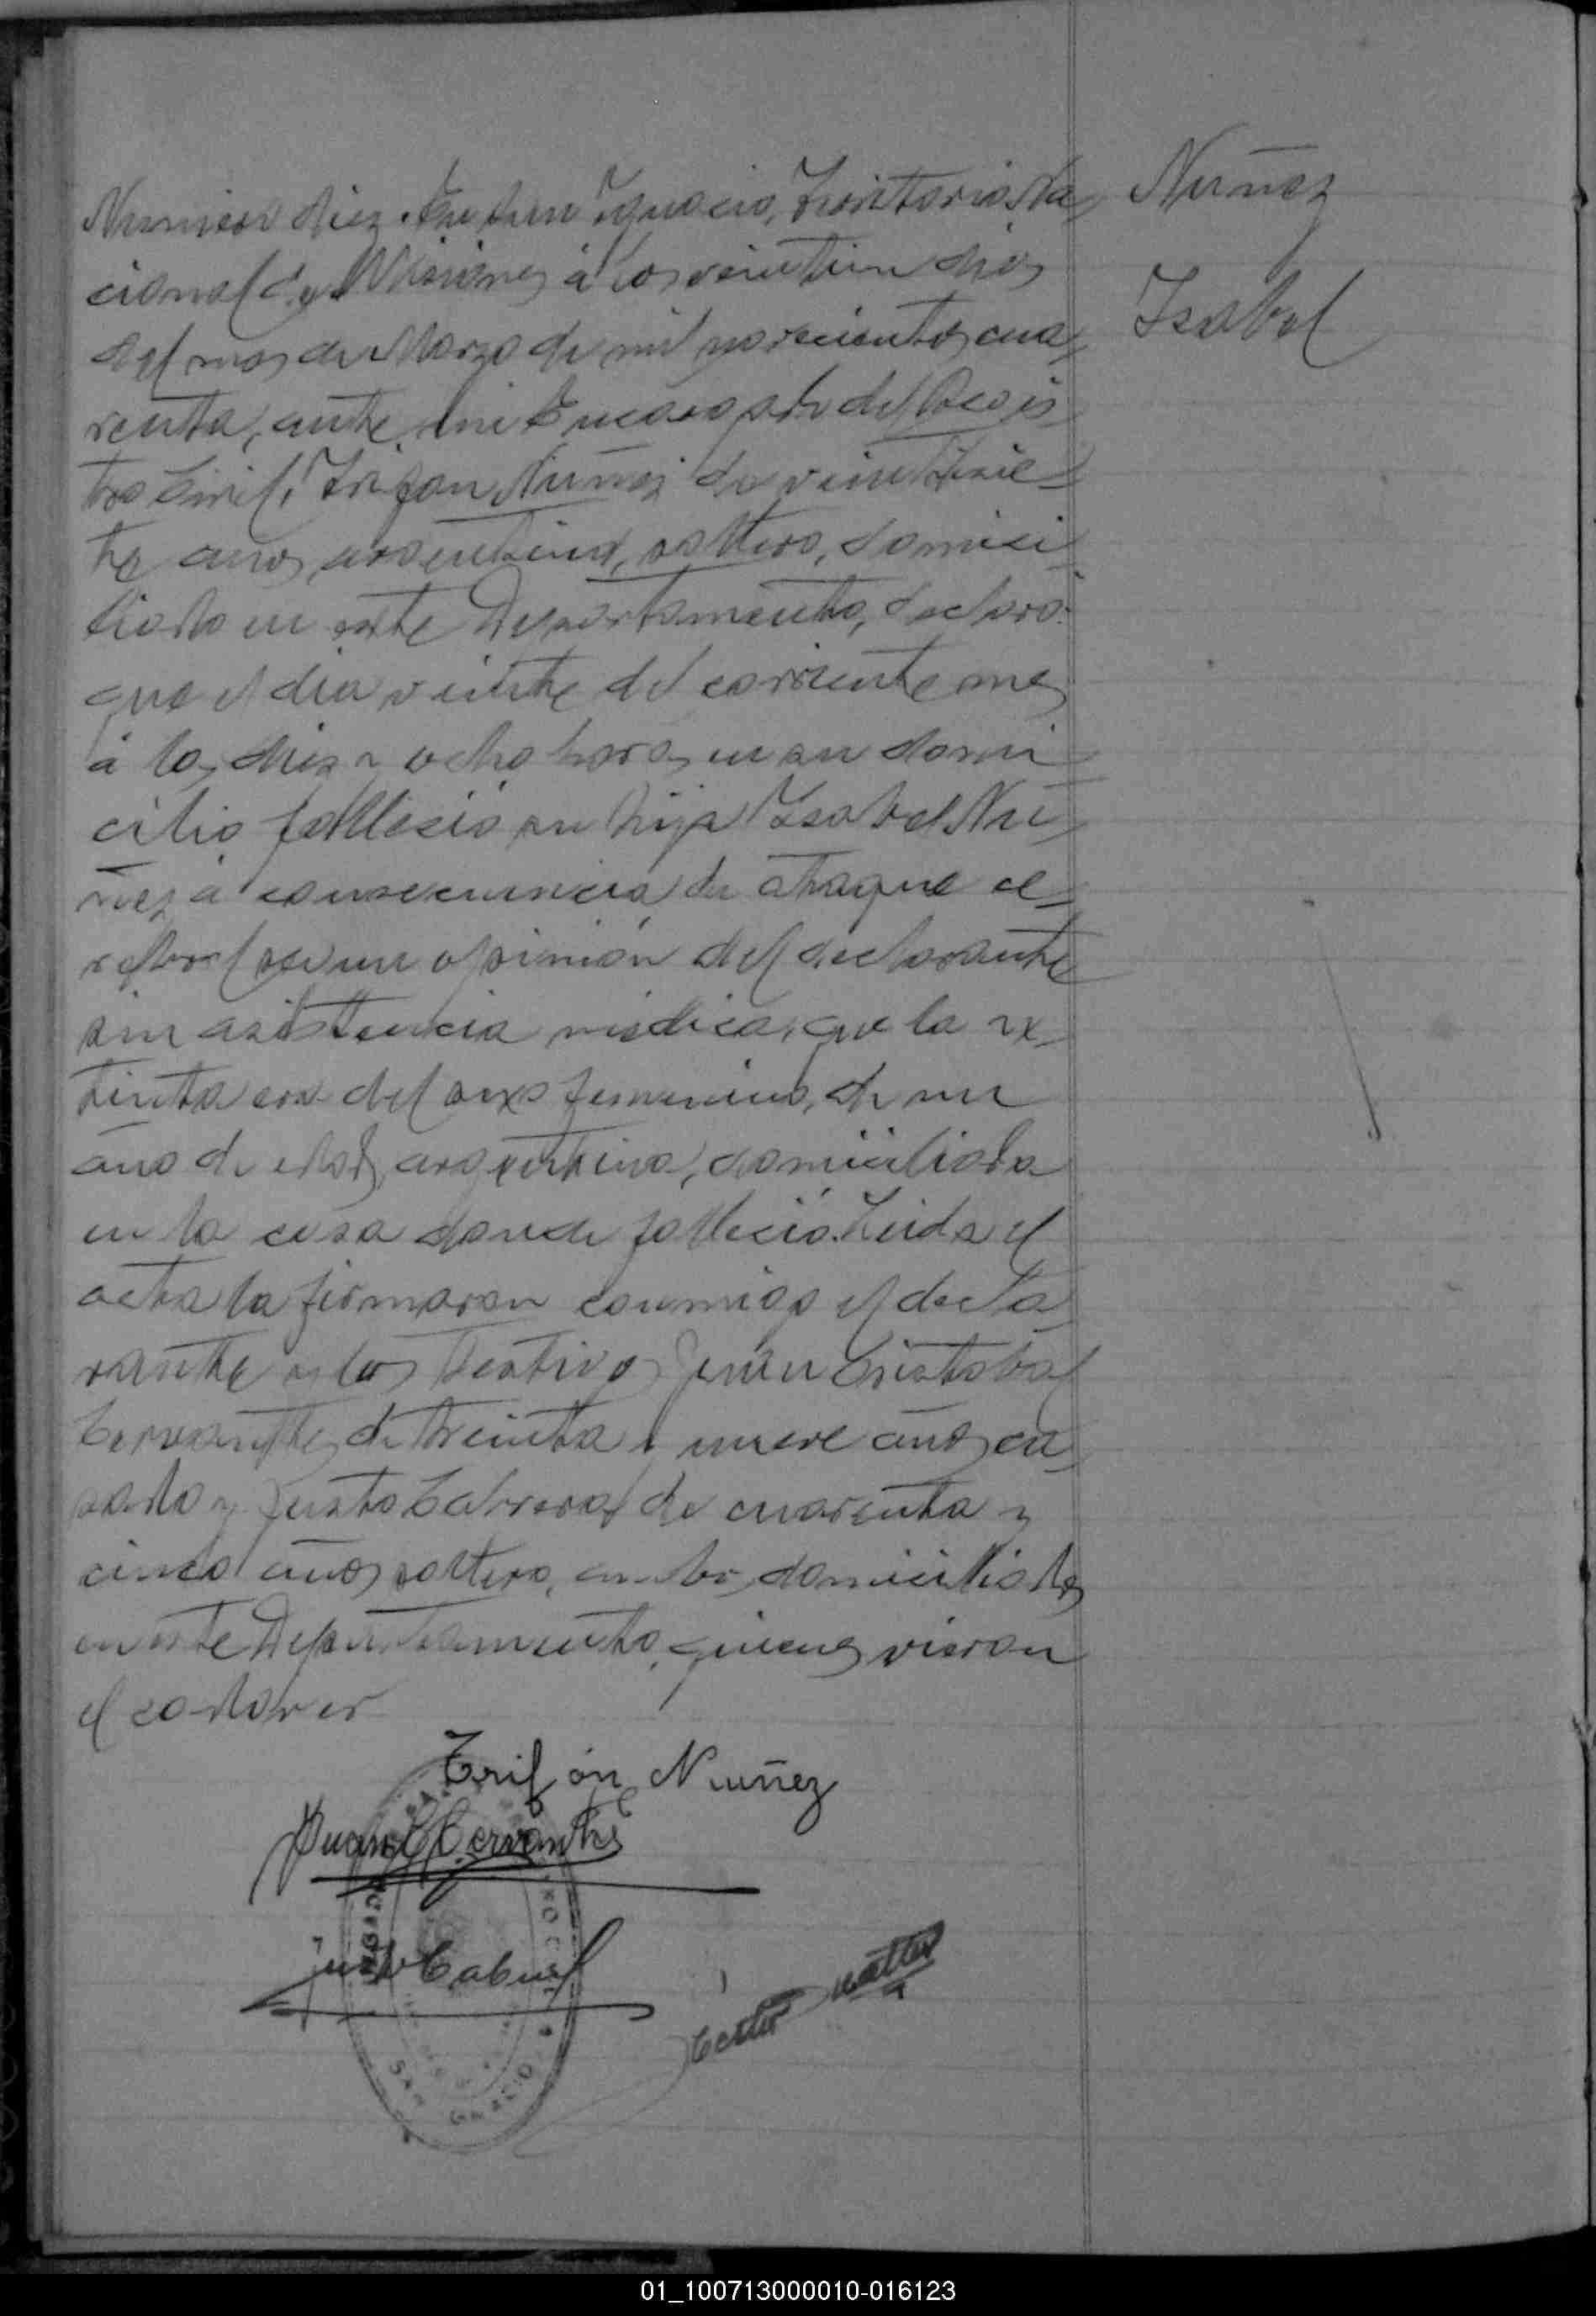 Numero diez. En San Ignacio, Territorio Na-
cional de Misiones, á los veintiun dias
del mes de Marzo de mil novecientos cua-
renta, ante mi Encargado del Regis-
tro Civil, Trifon Nuñez de veintisie-
te años, argentino, soltero, domici-
liado en este Departamento, declaró:
que el dia veinte del corriente mes
á las diez y ocho horas, en su domi-
cilio falleció su hija Isabel Nu-
ñez á consecuencia de ataque ce-
rebral según opinión del declarante
sin asistencia médica, que la ex-
tinta era del sexo femenino, de un
año de edad, argentina, domiciliada
en la casa donde falleció. Leida el
acta la firmaron conmigo el decla-
rante y los testigos Juan Cristobal
Cervantes, de treinta y nueve años, ca-
sado y Justo Cabrera, de cuarenta y
cinco años, soltero, ambos domiciliados
en este Departamento, quienes vieron
el cadaver
Nuñez
Isabel
Trifón Nuñez
Juan C. Cervantes
Justo Cabrera
SAN IGNACIO
01_100713000010-016123